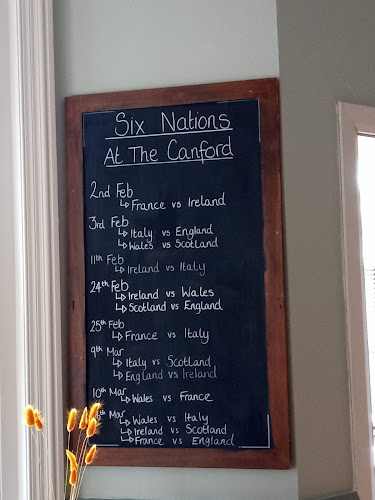 Six Nations
At The Canford
2nd Feb
↳ France vs Ireland
3rd Feb
↳ Italy vs England
↳ Wales vs Scotland
11th Feb
↳ Ireland vs Italy
24th Feb
↳ Ireland vs Wales
↳ Scotland vs England
25th Feb
↳ France vs Italy
9th Mar
↳ Italy vs Scotland
↳ England vs Ireland
10th Mar
↳ Wales vs France
Mar
↳ Wales vs Italy
↳ Ireland vs Scotland
↳ France vs England